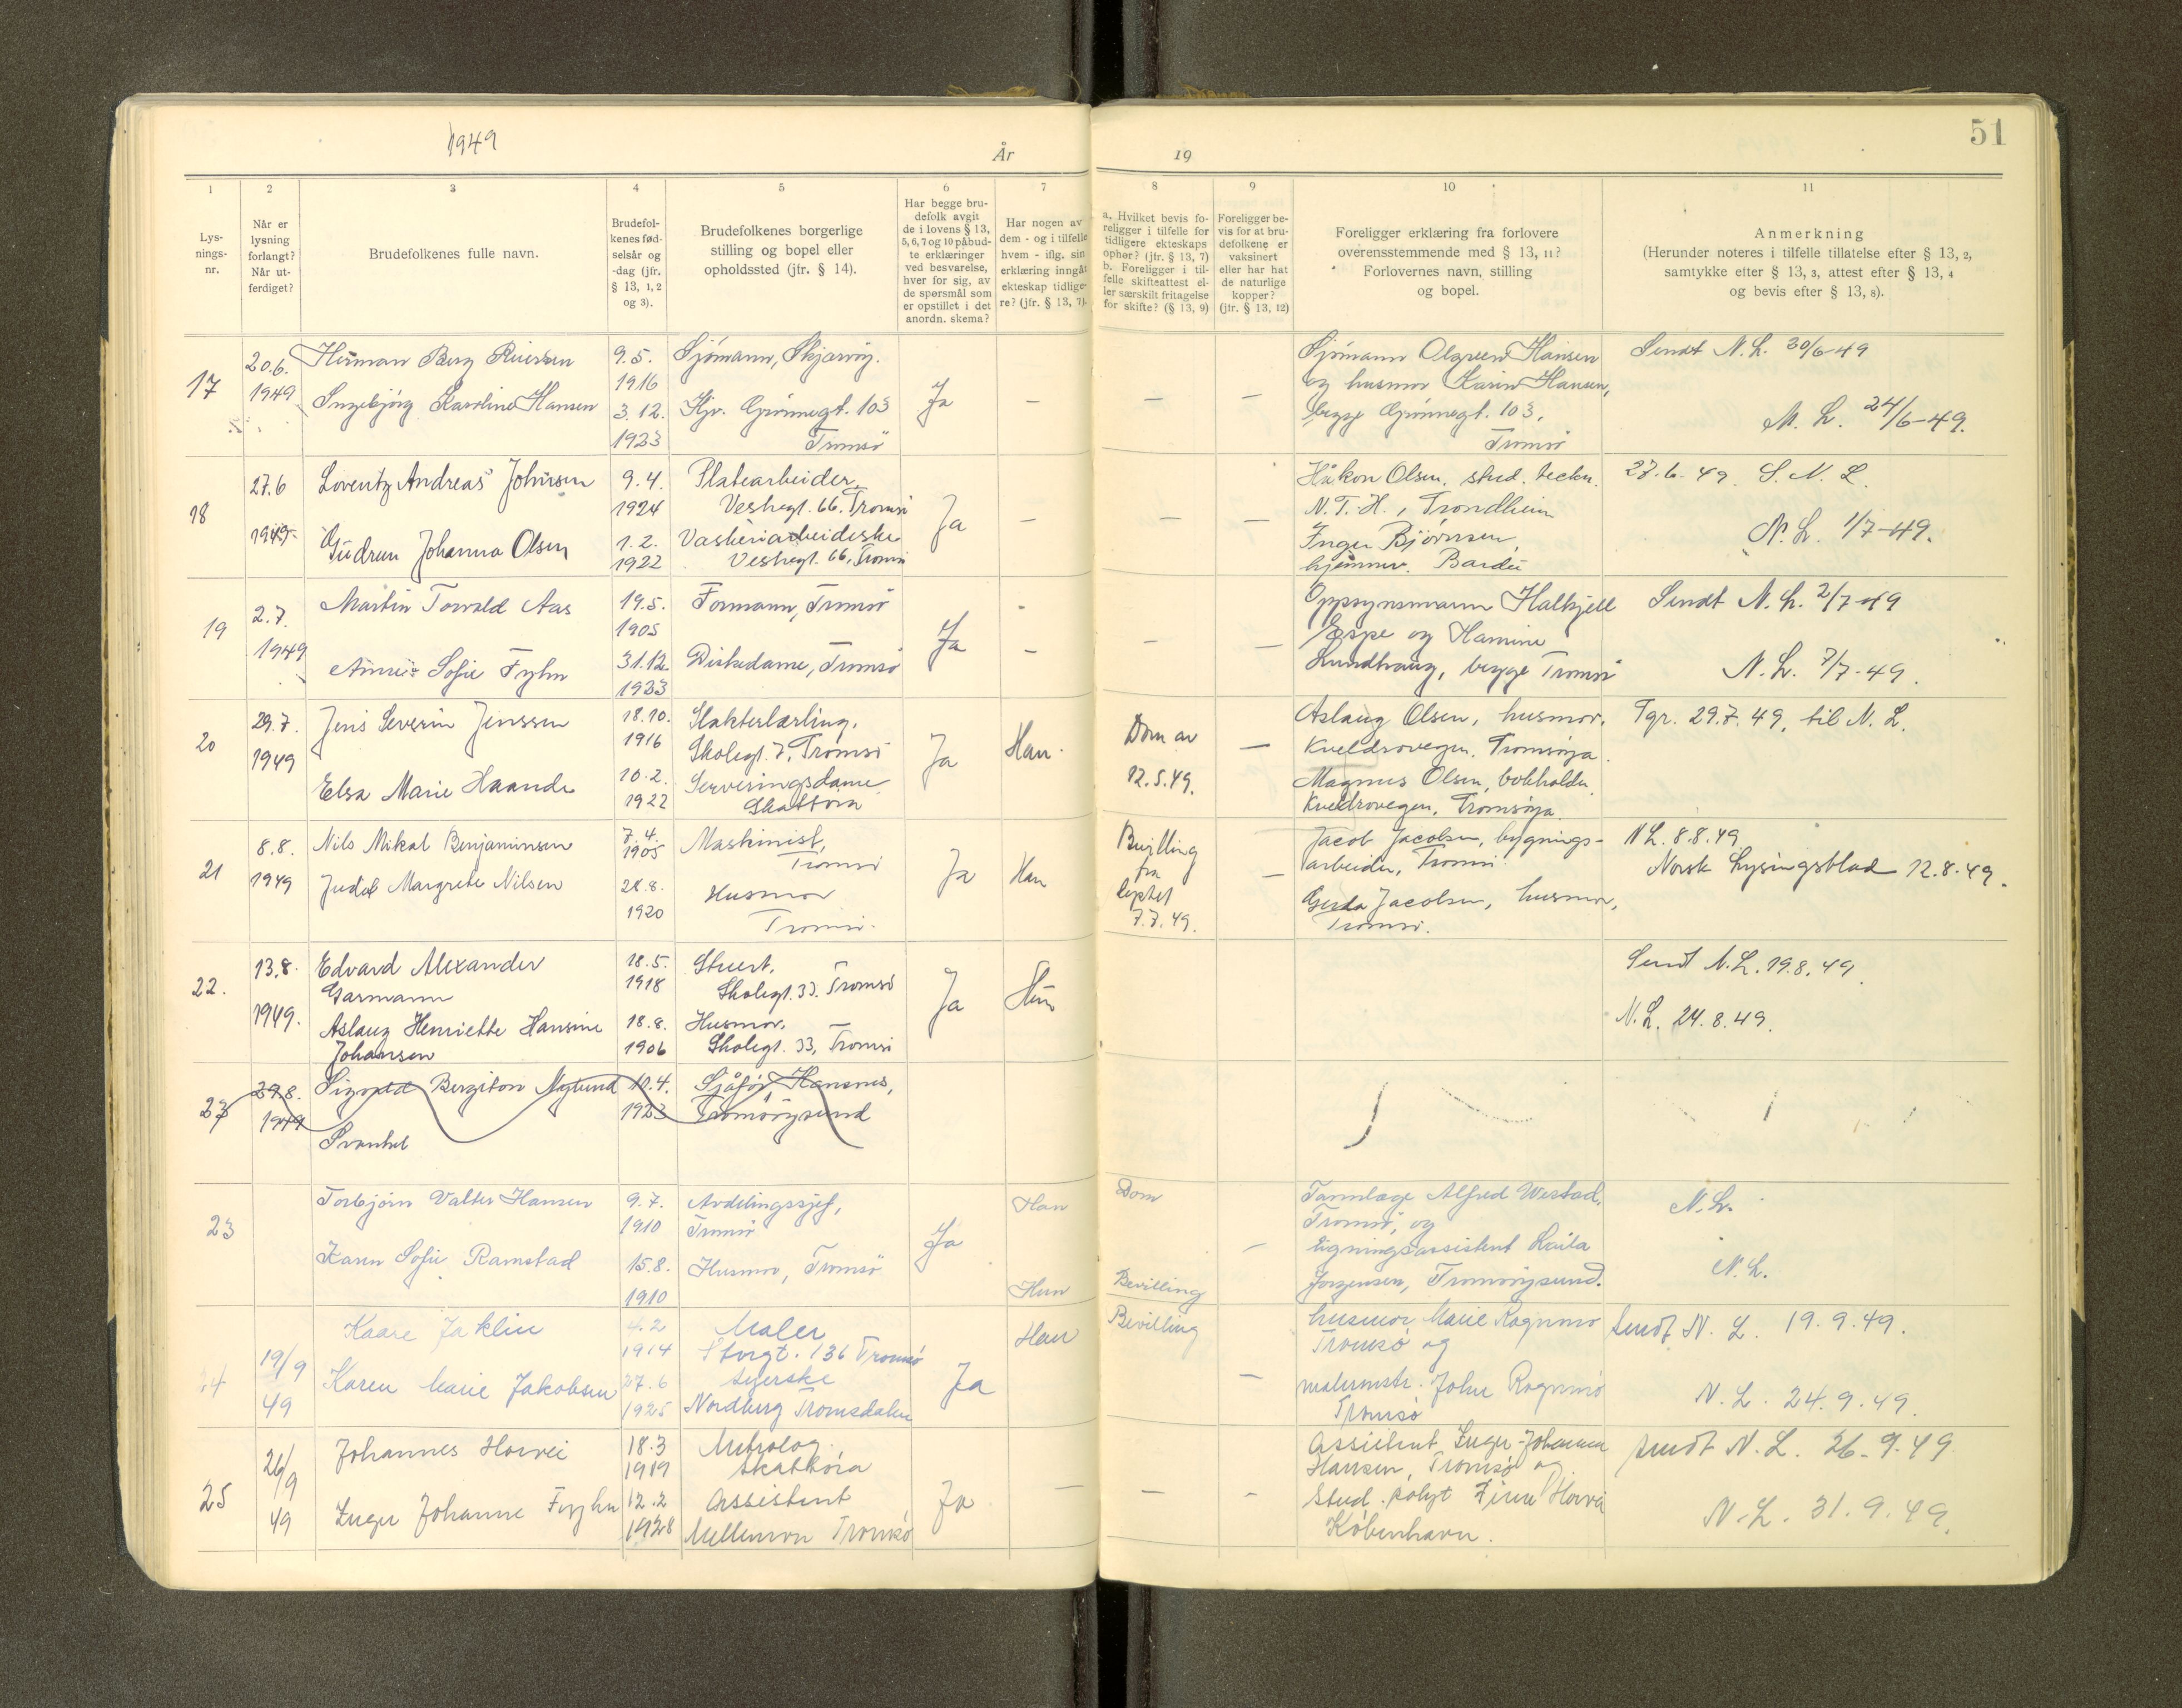 1949
År
19
51
1
2
3
4
5
6
7
8
9
10
11
Lys-
nings-
nr.
Når er
lysning
forlangt?
Når ut-
ferdiget?
Brudefolkenes fulle navn.
Brudefol-
kenes fød-
selsår og
-dag (jfr.
§ 13, 1, 2
og 3).
Brudefolkenes borgerlige
stilling og bopel eller
opholdssted (jfr. § 14).
Har begge bru-
defolk avgit
de i lovens § 13,
5, 6, 7 og 10 påbud-
te erklæringer
ved besvarelse,
hver for sig, av
de spørsmål som
er opstillet i det
anordn. skema?
Har nogen av
dem - og i tilfelle
hvem - iflg. sin
erklæring inngåt
ekteskap tidlige-
re? (jfr. § 13, 7).
a. Hvilket bevis fo-
religger i tilfelle for
tidligere ekteskaps
ophør? (jfr. § 13, 7)
b. Foreligger i til-
felle skifteattest el-
ler særskilt fritagelse
for skifte? (§ 13, 9)
Foreligger be-
vis for at bru-
defolkene er
vaksinert
eller har hat
de naturlige
kopper?
(jfr. § 13, 12)
Foreligger erklæring fra forlovere
overensstemmende med § 13, 11?
Forlovernes navn, stilling
og bopel.
Anmerkning
(Herunder noteres i tilfelle tillatelse efter § 13, 2,
samtykke efter § 13, 3, attest efter § 13, 4
og bevis efter § 13, 8).
17
20.6.
1949
Herman Berg
Ingebjörg Karoline Hansen
9.5.
1916
3.12.
1923
Sjömann, Skjervöy.
Hjv. Grönnegt. 103
Tromsö
Ja
–
–
–
Sjömann Hansen
og husmor Karin Hansen,
begge Grönnegt. 103,
Tromsö
Sendt N.L. 30/6-49
N.L. 24/6-49.
18
27.6
1949
Lorentz Andreas Johnsen
Gudrun Johanna Olsen
9.4.
1924
1.2.
1922
Platearbeider,
Vestregt. 66, Tromsö
Vaskeriarbeiderske
Vestregt. 66, Tromsö
Ja
–
–
–
Håkon Olsen, stud. techn.
N.T.H., Trondheim
Inger Björnsen,
hjemmev. Bardu
27.6.49 S.N.L.
N.L. 1/7-49.
19
2.7.
1949
Martin Torvald Aas
Annie Sofie Fyhn
19.5.
1905
31.12.
1923
Formann, Tromsö
Diskedame, Tromsö
Ja
-
–
–
–
Oppsynsmann Halkjell
Espe og Hamine
Lundhaug, begge Tromsö
Sendt N.L. 2/7-49
N.L. 7/7-49.
20
29.7.
1949
Jens Severin Jenssen
Elsa Marie Haande
18.10.
1916
10.2.
1922
Slakterlærling,
Skolegt. 7, Tromsö
Serveringsdame
Skattöra
Ja
Han
Dom av
12.5.49.
–
Aslaug Olsen, husmor,
Kveldrovegen, Tromsöya.
Magnus Olsen, bokholder,
Kveldrovegen, Tromsöya.
Tgr. 29.7.49, til N.L.
21
8.8.
1949
Nils Mikal Benjaminsen
Judel Margrete Nilsen
7.4.
1905
28.8.
1920
Maskinist,
Tromsö
Husmor
Tromsö.
Ja
Han
Bevilling
fra
7.7.49.
–
Jacob Jacobsen, bygnings-
arbeider, Tromsö.
Gerda Jacobsen, husmor,
Tromsö.
N.L. 8.8.49
Norsk Lysingsblad 12.8.49.
22.
13.8.
1949.
Edvard Alexander
Garmann
Aslaug Henriette Hansine
Johansen
18.5.
1918
18.8.
1906
Stuert,
Skolegt. 33. Tromsö
Husmor,
Skolegt. 33, Tromsö
Ja
Hun
Sendt N.L. 19.8.49
N.L. 24.8.49.
23
29.8.
1949
Bergiton Myrlund
Svanhel
10.4.
1923
Sjåfør, Hansnes,
Tromsöysund
23
Torbjörn Valter Hansen
Karen Sofie Ramstad
9.7.
1910
15.8.
1910
Avdelingssjef,
Tromsö
Husmor, Tromsö
Ja
Han
Hun
Dom
Bevilling
–
Tannlæge Alfred Westad,
Tromsö, og
ligningsassistent Laila
Jorgensen, Tromsöysund.
N.L.
N.L.
24
19/9
49
Kaare Jaklin
Karen Marie Jakobsen
4.2
1914
27.6
1925
Maler
Storgt. 136 Tromsö
Syerske
Nordberg Tromsdalen
Ja
Han
Bevilling
–
husmor Marie Rognmo
Tromsö og
malermstr. John Rognmo
Tromsö
Sendt N.L. 19.9.49.
N.L. 24.9.49.
25
26/9
49
Johannes Horvei
Inger Johanne Fyhn
18.3
1919
12.2
1928
Metrolog,
Skattöra
Assistent
Mellemvn Tromsö
Ja
–
–
-
Assistent Inger-Johanne
Hansen, Tromsö og
Stud. polyt Finn Horvei
København.
Sendt N.L. 26.9.49
N.L. 31.9.49.